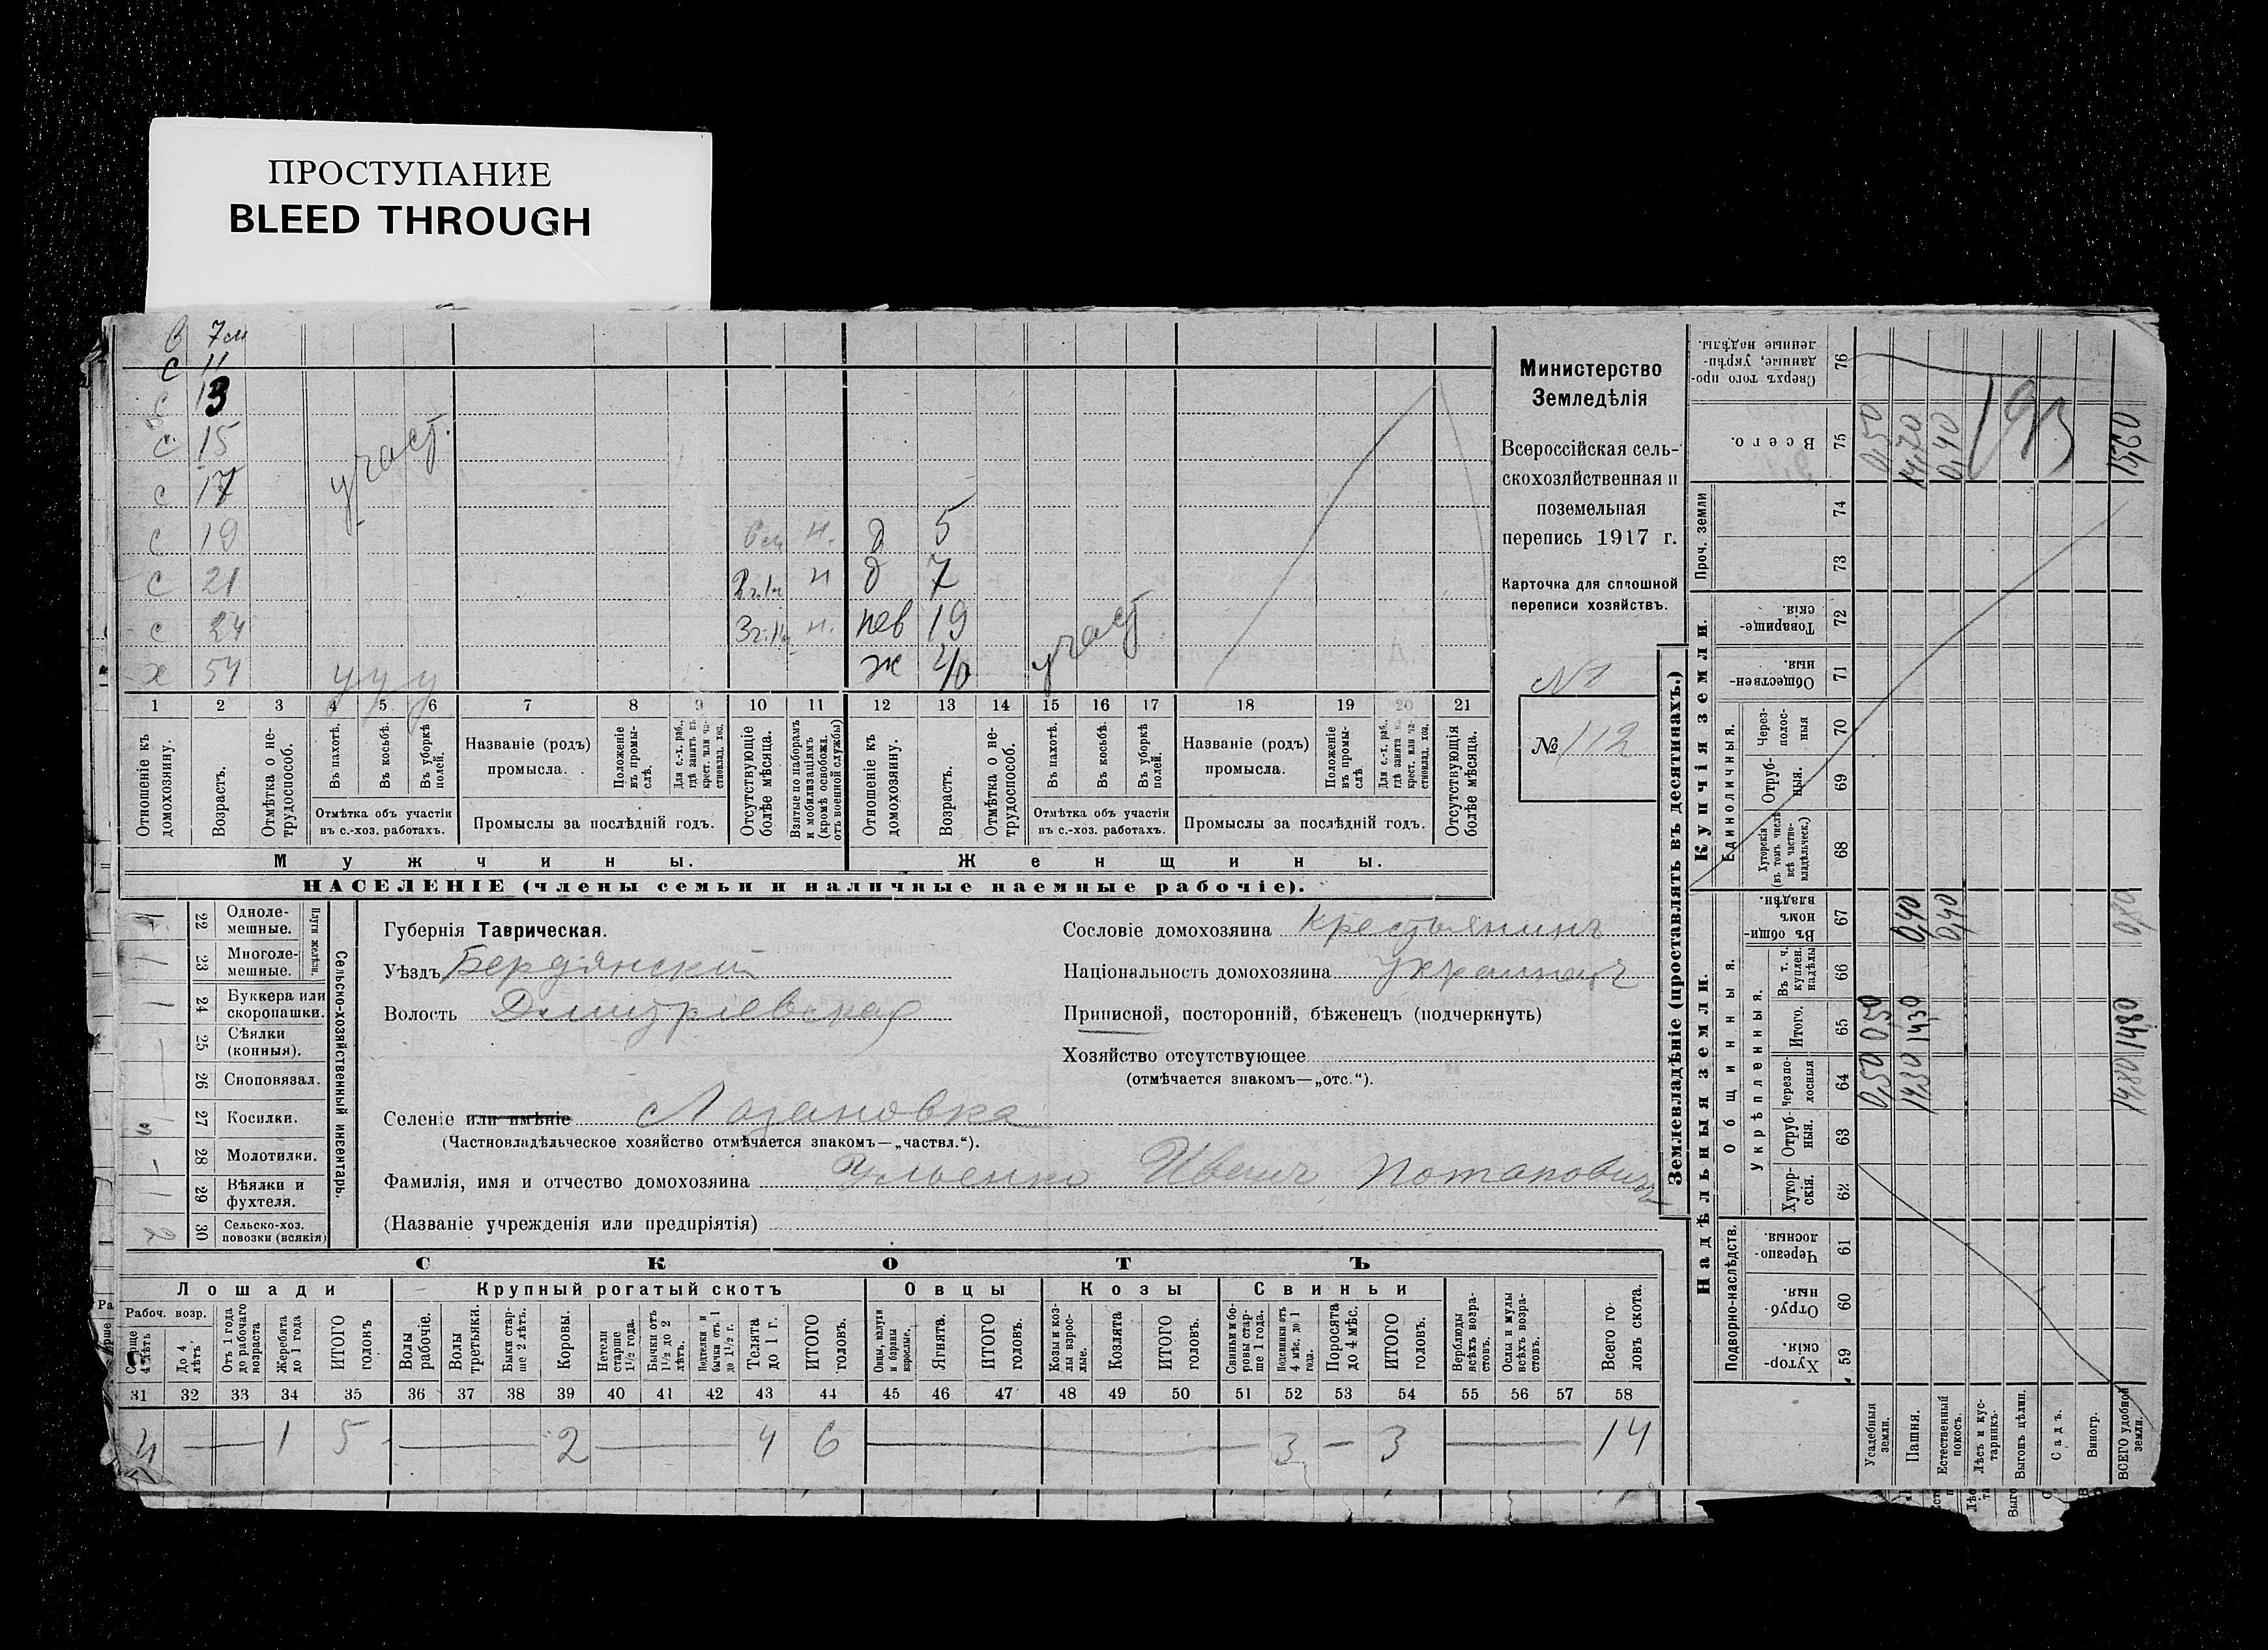 ПРОСТУПАНИЕ
BLEED THROUGH
7м
с 11
с 13
с 15
с 17
с 19 6м н.
с 21 2г.1м н
с 24 3г.1м н.
х 54 у у у
участ.
д 5
д 7
нев 19
ж 40
участ
1 2 3 4 5 6 7 8 9 10 11 12 13 14 15 16 17 18 19 20 21
Отношеніе къ домохозяину.
Возрастъ.
Отмѣтка о не-трудоспособ.
Въ пахотѣ.
Въ косьбѣ.
Въ уборкѣ полей.
Отмѣтка объ участіи въ с.-хоз. работахъ.
Названіе (родъ) промысла.
Положеніе въ промы-слѣ.
Для с.-х. раб., гдѣ занятъ въ крест. или ча-стновлад. хоз.
Промыслы за послѣдній годъ.
Отсутствующіе болѣе мѣсяца.
Взятые по наборамъ и мобилизаціямъ (кромѣ освобожд. отъ военной службы)
Отношеніе къ домохозяину.
Возрастъ.
Отмѣтка о не-трудоспособ.
Въ пахотѣ.
Въ косьбѣ.
Въ уборкѣ полей.
Отмѣтка объ участіи въ с.-хоз. работахъ.
Названіе (родъ) промысла.
Положеніе въ промы-слѣ.
Для с.-х. раб., гдѣ занята въ крест. или ча-стновлад. хоз.
Промыслы за послѣдній годъ.
Отсутствующія болѣе мѣсяца.
Мужчины.
Женщины.
НАСЕЛЕНІЕ (члены семьи и наличные наемные рабочіе).
Министерство
Земледѣлія
Всероссійская сель-
скохозяйственная и
поземельная
перепись 1917 г.
Карточка для сплошной
переписи хозяйствъ.
№
№ 112
22 Одноле-мешные.
23 Многоле-мешные.
Плуги желѣзн.
24 Буккера или скоропашки.
25 Сѣялки (конныя).
26 Сноповязал.
27 Косилки.
28 Молотилки.
29 Вѣялки и фухтеля.
30 Сельско-хоз. повозки (всякія)
2
Сельско-хозяйственный инвентарь.
Губернія Таврическая.
Уѣздъ Бердянскій
Волость Дмитріевская
Селеніе или имѣніе Лозановка
(Частновладѣльческое хозяйство отмѣчается знакомъ—„частвл.“).
Фамилія, имя и отчество домохозяина Иванъ Потаповичъ
(Названіе учрежденія или предпріятія)
Сословіе домохозяина крестьянинъ
Національность домохозяина украинецъ
Приписной, посторонній, бѣженецъ (подчеркнуть)
Хозяйство отсутствующее
(отмѣчается знакомъ—„отс.“).
СКОТЪ
Лошади
Крупный рогатый скотъ
Овцы
Козы
Свиньи
Рабоч. возр.
Старше 4 лѣтъ
До 4 лѣтъ
Отъ 1 года до рабочаго возраста
Жеребята до 1 года
ИТОГО головъ
Волы рабочіе.
Волы третьяки.
Быки стар-ше 2 лѣтъ.
Коровы.
Нетели старше 1½ года.
Бычки отъ 1½ до 2 лѣтъ.
Подтелки и бычки отъ 1 до 1½ г.
Телята до 1 г.
ИТОГО головъ.
Овцы, валухи и бараны взрослые.
Ягнята.
ИТОГО головъ.
Козы и коз-лы взрос-лые.
Козлята
ИТОГО головъ.
Свиньи и бо-ровы стар-ше 1 года.
Подсвинки отъ 4 мѣс. до 1 года.
Поросята до 4 мѣс.
ИТОГО головъ.
Верблюды всѣхъ возра-стовъ.
Ослы и мулы всѣхъ возра-стовъ.
Всего го-ловъ скота.
31 32 33 34 35 36 37 38 39 40 41 42 43 44 45 46 47 48 49 50 51 52 53 54 55 56 57 58
4 — 1 5 — 2 — 4 6 — 3 — 3 — 14
Землевладѣніе (проставлять въ десятинахъ.)
Купчія земли.
Надѣльныя земли.
Сверхъ того про-данные, укрѣп-ленные надѣлы. 76
Всего. 75
Проч. земли 74 73
Товарище-скія. 72
Обществен-ныя. 71
Единоличныя.
Через-полос-ныя 70
Отруб-ныя. 69
Хуторскія (въ томъ числѣ всѣ частно-владѣльческ.) 68
Общинныя.
Въ общин-номъ владѣн. 67
Укрѣпленныя.
Въ т. ч. куплен. надѣлы 66
Итого. 65
Черезпо-лосныя 64
Отруб-ныя. 63
Хутор-скія. 62
Подворно-наслѣдств.
Черезпо-лосныя. 61
Отруб-ныя. 60
Хутор-скія. 59
Усадебныя земли.
Пашня.
Естественный покосъ.
Лѣсъ и кус-тарникъ.
Выгонъ цѣлин.
Садъ.
Виногр.
ВСЕГО удобной земли.
0,50 14,70 0,40 15,60
193
0,40 0,40 0,80
0,50 14,30 14,80
0,50 14,30 14,80